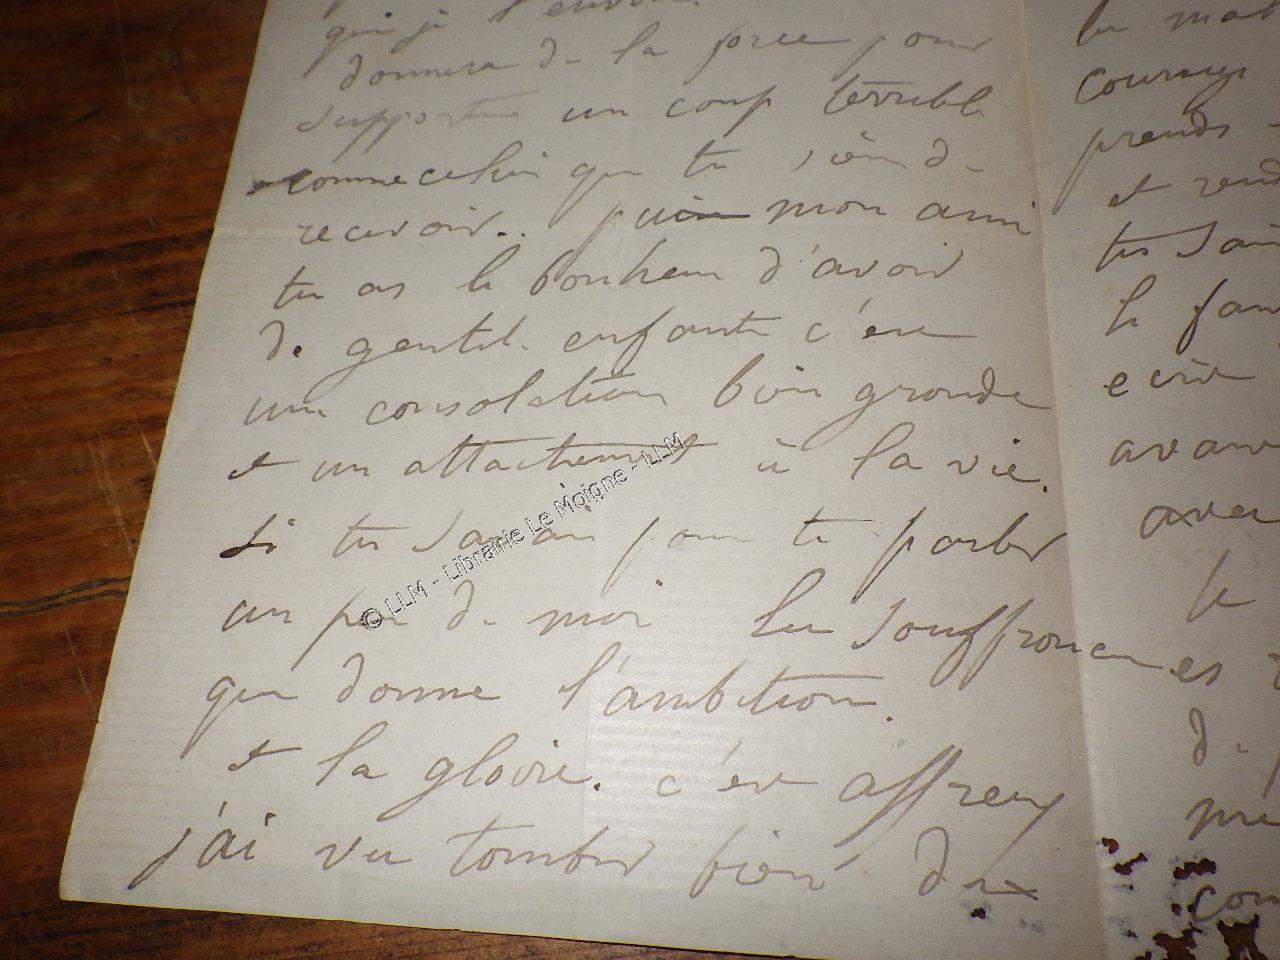 que je t'envoie.
donnera de la force pour
supporter un coup terrible
comme celui que tu viens de
recevoir.. puis mon ami
tu as le bonheur d'avoir
de gentils enfants c'est
une consolation bien grande
et un attachement à la vie.
si tu savais pour te parler
un peu de moi les souffrances
que donne l'ambition.
et la gloire. c'est affreux
j'ai vu tomber bien des
courage
prends
et rend
tu sai
le fam
ecrire
avant
avec
je
es
de
con
© LLM - Librairie Le Moigne - LLM